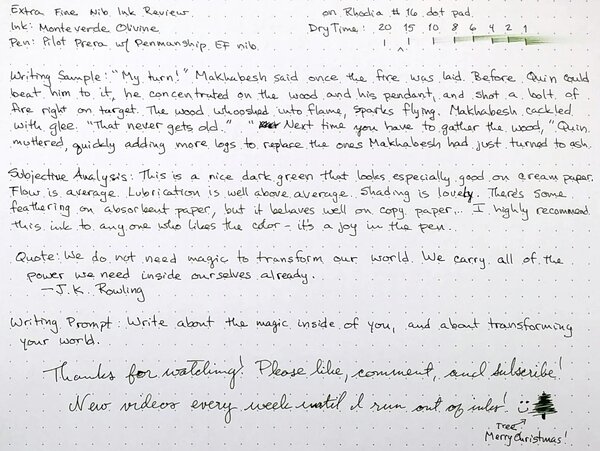 Extra Fine Nib Ink Review on Rhodia #16 dot pad.
Ink: Monteverde Olivine Dry Time: 20 15 10 8 6 4 2 1
Pen: Pilot Prera w/ Penmanship EF nib.
Writing Sample: "My turn!" Makhabesh said once the fire was laid. Before Quin could
beat him to it, he concentrated on the wood and his pendant, and shot a bolt of
fire right on target. The wood whooshed into flame, sparks flying. Makhabesh cackled
with glee. "That never gets old." "Next time you have to gather the wood," Quin
muttered, quickly adding more logs to replace the ones Makhabesh had just turned to ash.
Subjective Analysis: This is a nice dark green that looks especially good on cream paper.
Flow is average. Lubrication is well above average. Shading is lovely. There's some
feathering on absorbent paper, but it behaves well on copy paper... I highly recommend
this ink to anyone who likes the color - it's a joy in the pen.
Quote: We do not need magic to transform our world. We carry all of the
power we need inside ourselves already.
—J.K. Rowling
Writing Prompt: Write about the magic inside of you, and about transforming
your world.
Thanks for watching! Please like, comment, and subscribe!
New videos every week until I run out of inks!
Tree
Merry Christmas!